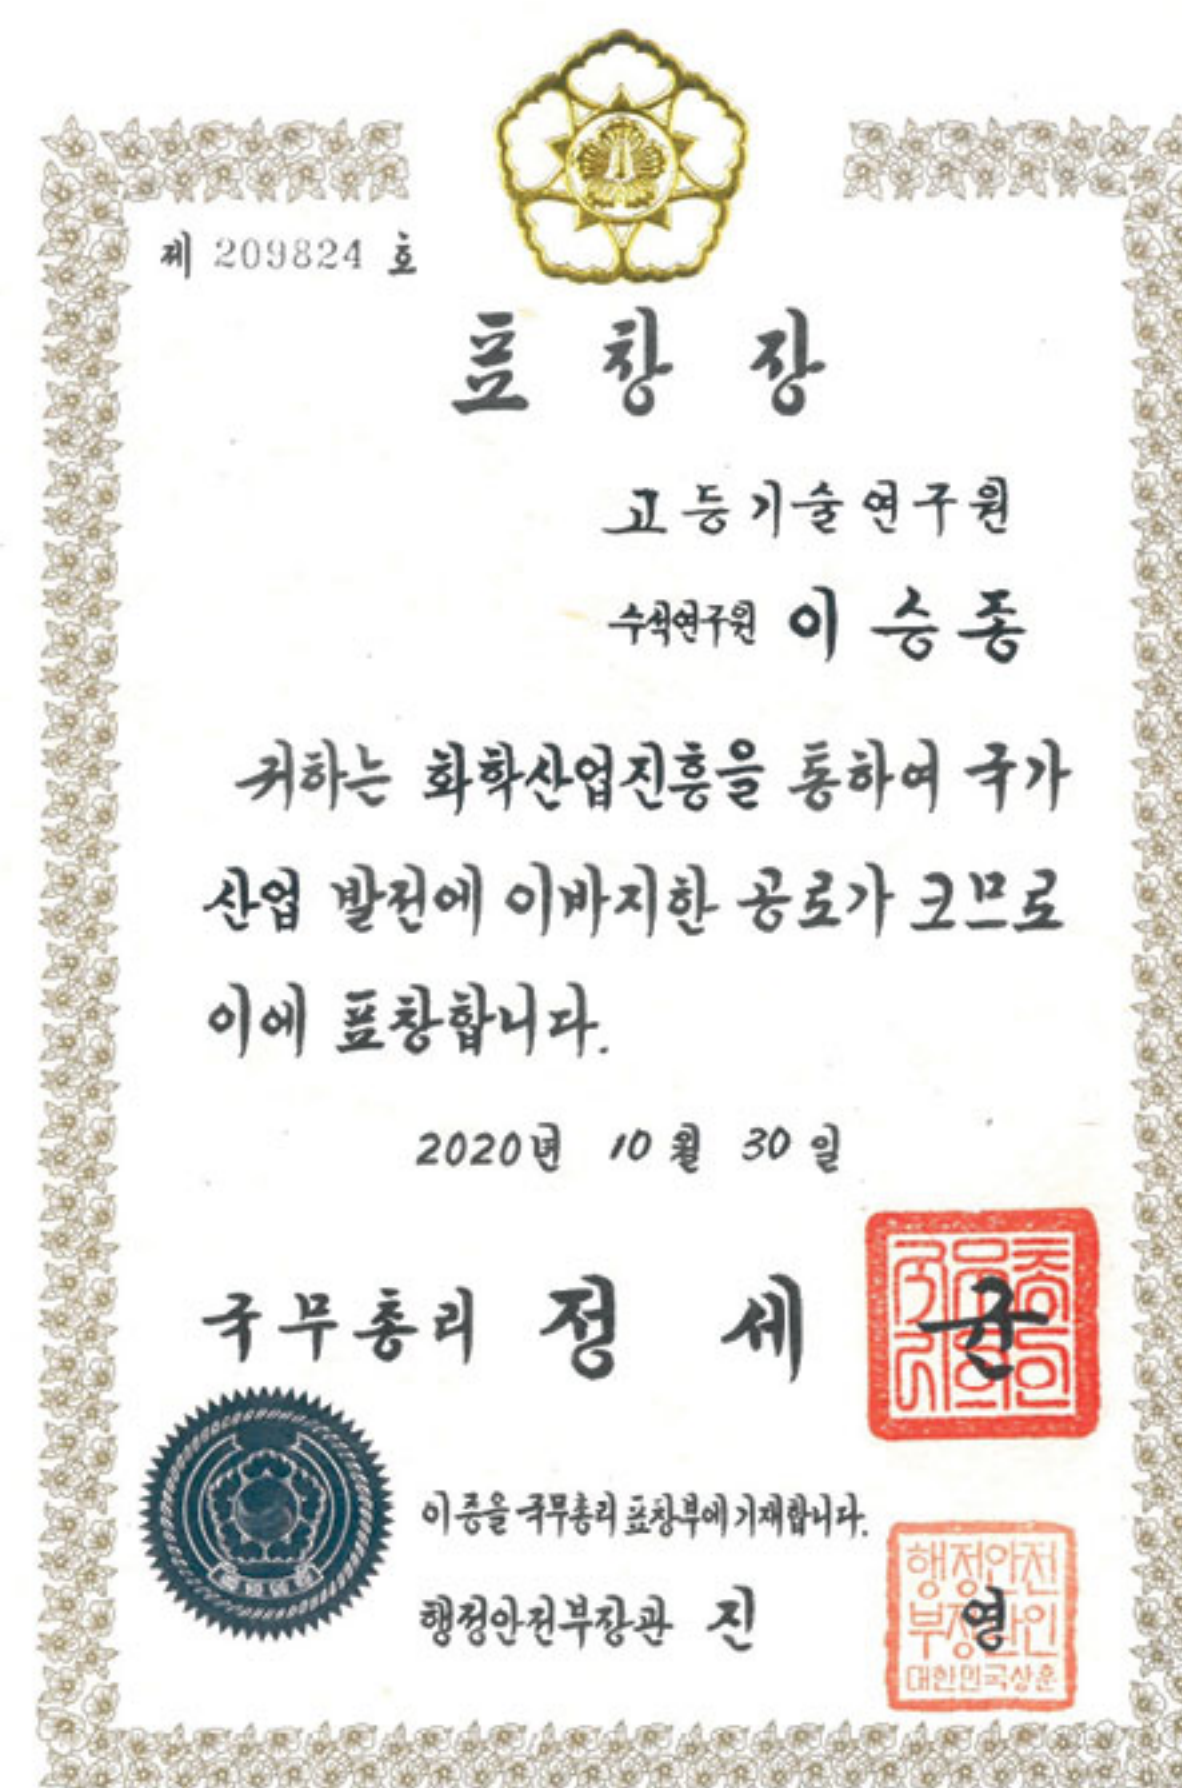 제 209824 호
표 창 장
고등기술연구원
수석연구원 이 승 종
귀하는 화학산업진흥을 통하여 국가
산업 발전에 이바지한 공로가 크므로
이에 표창합니다.
2020년 10월 30일
국무총리 정 세 균
이 증을 국무총리 표창부에 기재합니다.
행정안전부장관 진 영
행정안전
부장관인
대한민국상훈